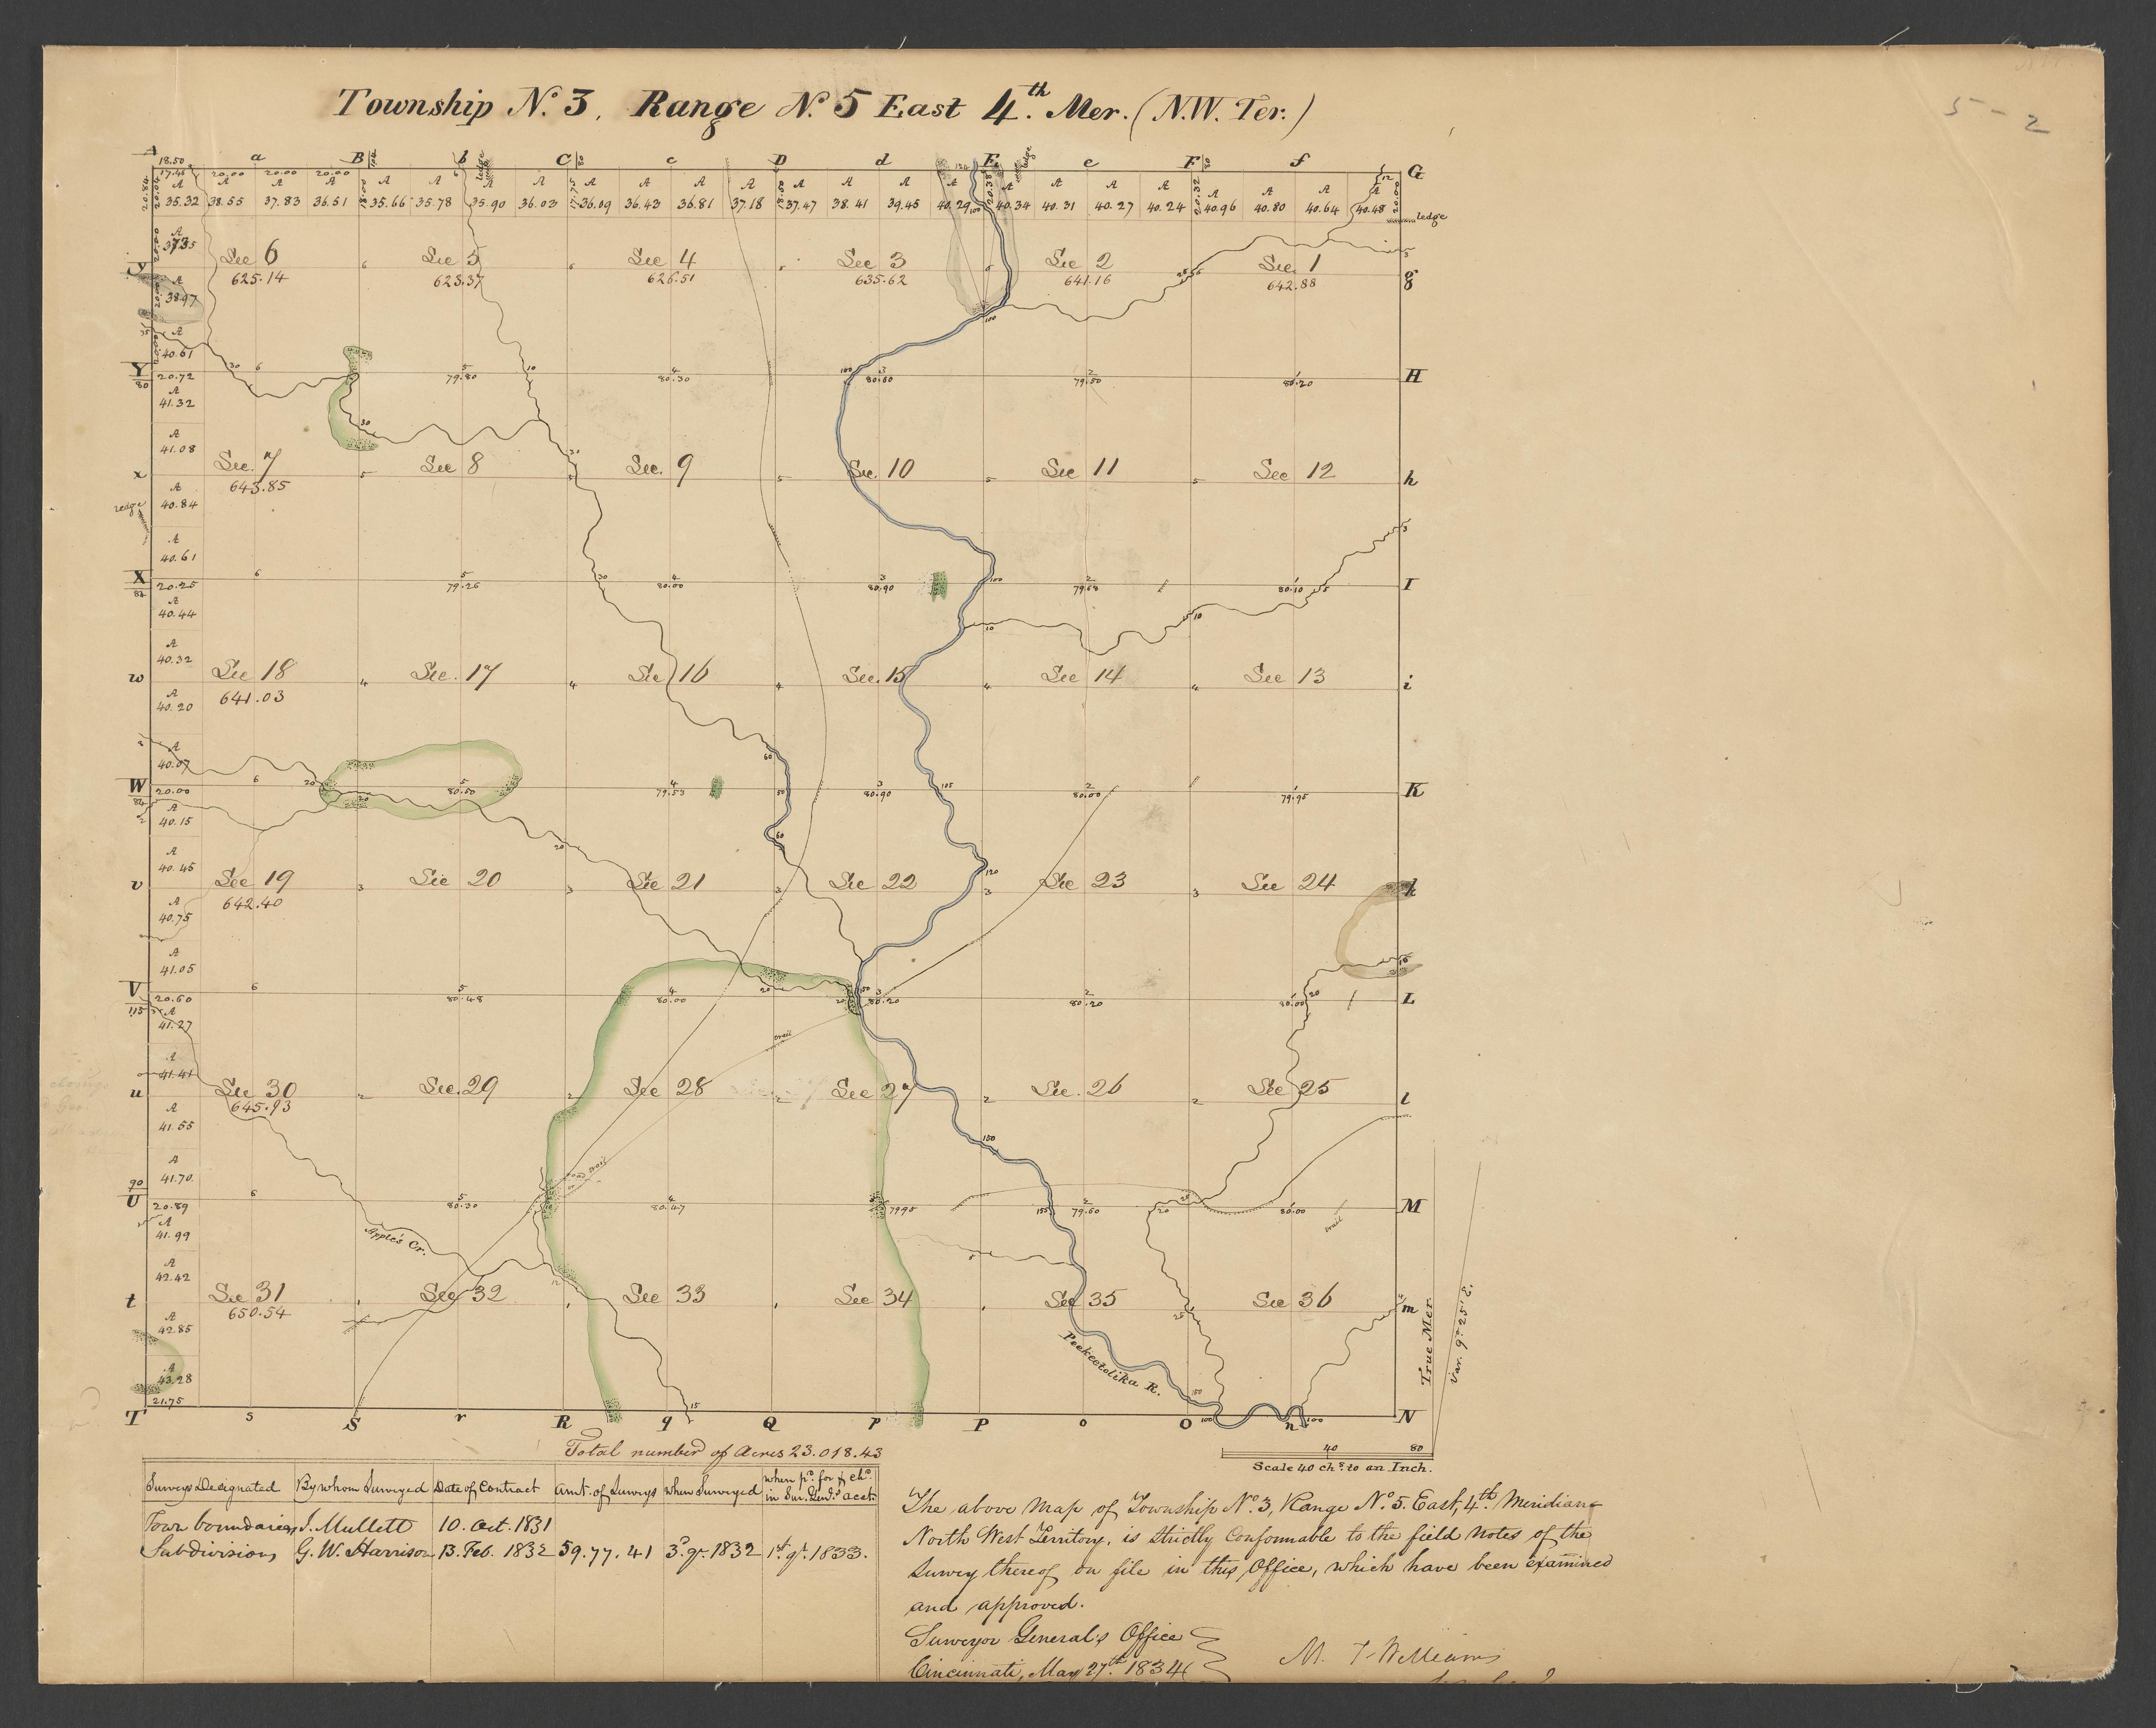 5 - 2
Township No. 3, Range No. 5 East 4th. Mer. (N.W. Ter.)
A 18.50 a B b ledge C c D d E ledge e F f G
17.46 20.00 20.00 20.00
A A A A A A A A A A A A A A A A A A A A A A A A
35.32 38.55 37.83 36.51 35.66 35.78 35.90 36.03 36.09 36.43 36.81 37.18 37.47 38.41 39.45 40.29 40.34 40.31 40.27 40.24 40.96 40.80 40.64 40.48
ledge
See 6 See 5 See 4 See 3 See 2 See. 1
y 625.14 623.37 626.51 635.62 641.16 642.88 g
38.97
A
40.61
Y 20.72 79.80 80.30 80.60 79.50 80.20 H
80
A
41.32
A
41.08
See. 7 See 8 See. 9 See. 10 See 11 See 12
x 643.85 h
ledge
A
40.84
A
40.61
X 20.25 79.26 80.00 80.90 79.68 80.10 I
A
40.44
A
40.32
See 18 See. 17 See 16 See. 15 See 14 See 13
w 641.03 i
A
40.20
A
40.07
W 20.00 80.50 79.53 80.90 80.00 79.95 K
A
40.15
A
40.45
See 19 See 20 See 21 See 22 See 23 See 24
v 642.40 k
A
40.75
A
41.05
V 20.60 80.48 80.00 80.20 80.20 80.00 L
115
A
41.27
trail
A
41.41
See 30 See. 29 See 28 See 27 See. 26 See 25
u 645.93 l
A
41.55
A
41.70
90
U 20.89 80.30 80.47 79.95 79.60 80.00 M
A
41.99
Apple's Cr.
trail
A
42.42
See 31 See 32 See 33 See 34 See 35 See 36
t 650.54 m
A
42.85
Peekeetolika R.
True Mer.
Var. 9° 25' E.
A
43.28
21.75
T s S r R q Q p P o O n N
Total number of Acres 23.018.43
40 80
Scale 40 chs. to an Inch.
Surveys Designated By whom Surveyed Date of Contract Amt. of Surveys When Surveyed When pd. for & chd. in Sur. Genl.s acct.
Town boundaries J. Mullett 10. Oct. 1831
Subdivisions G. W. Harrison 13. Feb. 1832 59. 77. 41 3d. qr. 1832 1st. qr. 1833.
The above Map of Township No. 3, Range No. 5. East, 4th. Meridian
North West Territory, is strictly Conformable to the field Notes of the
Survey thereof on file in this Office, which have been examined
and approved.
Surveyor General's Office
Cincinnati, May 27th. 1834
M. T. Williams